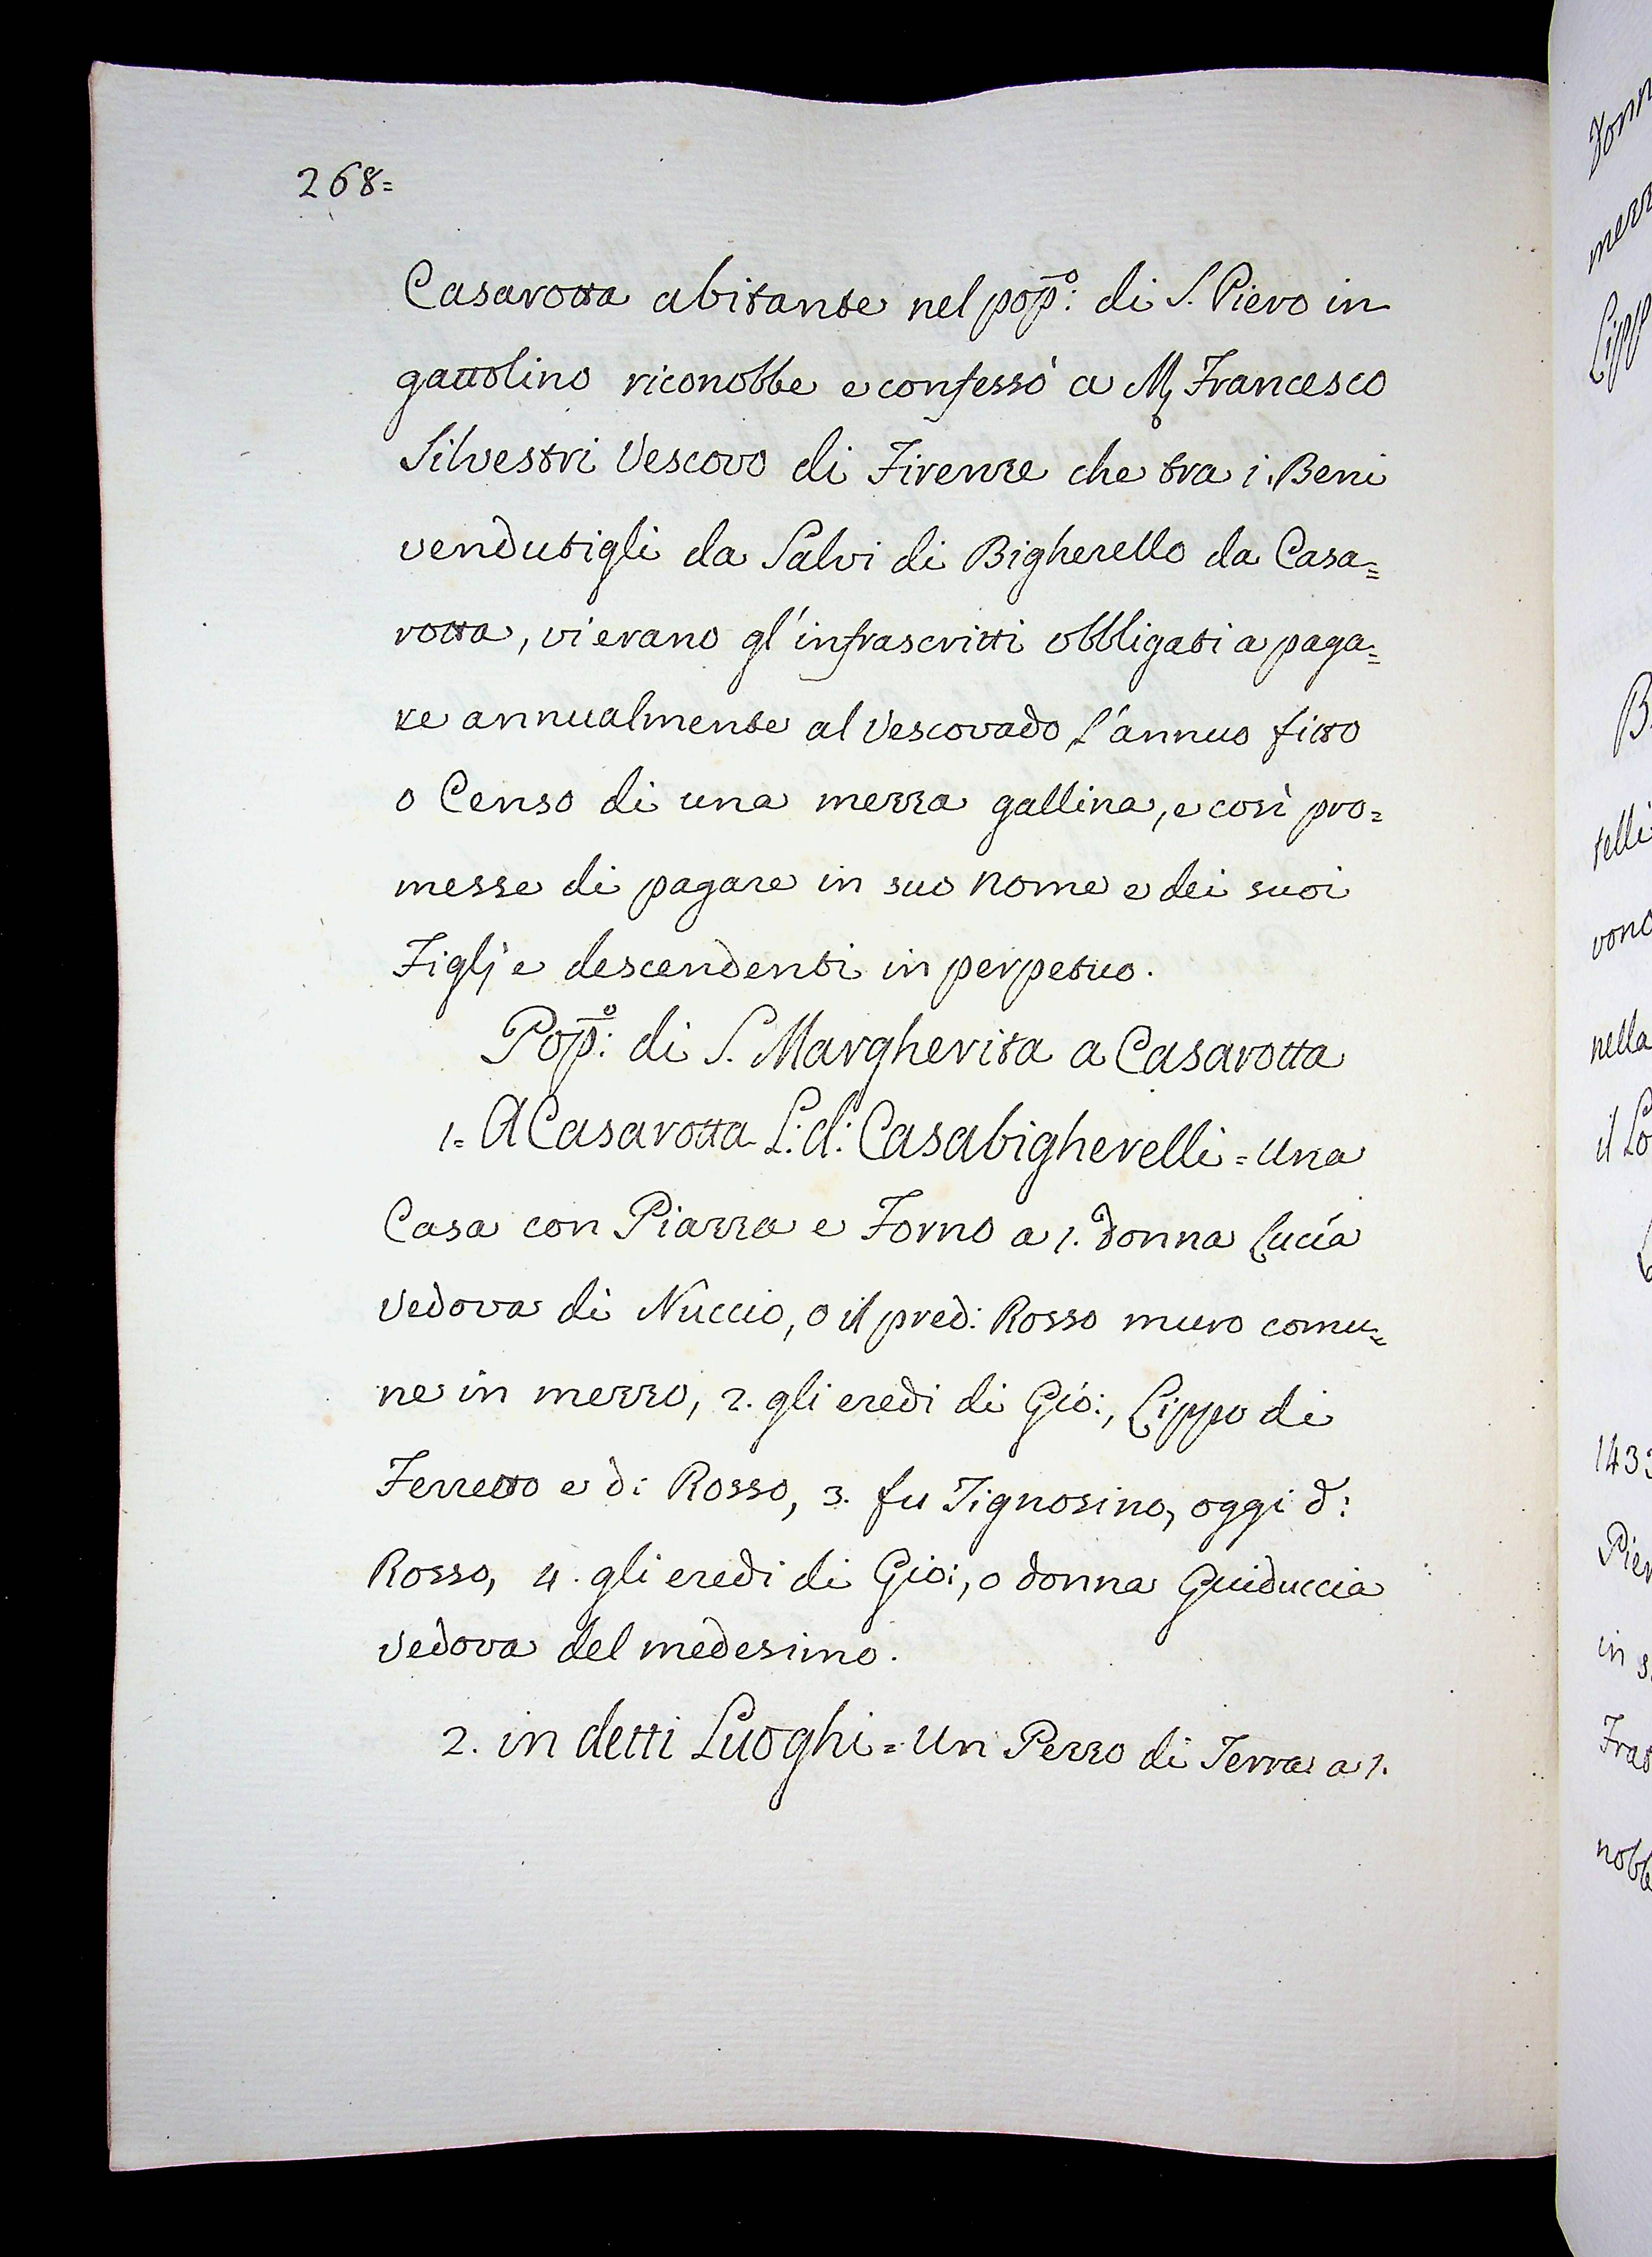 268=
Casarotta abitante nel pop̄º: di S. Piero in
gattolino riconobbe e confessò a M. Francesco
Silvestri Vescovo di Firenze che tra i Beni
vendutigli da Salvi di Bigherello da Casa=
rotta, vi erano gl'infrascritti obbligati a paga=
re annualmente al Vescovado l'annuo fitto
o Censo di una mezza gallina, e così pro=
messe di pagare in suo nome e dei suoi
Figlj e descendenti in perpetuo.
Pop̄º: di S. Margherita a Casarotta
1= A Casarotta L: d: Casabigherelli = Una
Casa con Piazza e Forno a 1. donna Lucía
vedova di Nuccio, o il pred: Rosso muro comu=
ne in mezzo, 2. gli eredi di Gió:, Lippo di
Ferretto e d: Rosso, 3. fu Tignosino, oggi d:
Rosso, 4. gli eredi di Gio:, o donna Guiduccia
vedova del medesimo.
2. in detti Luoghi = Un Pezzo di Terra a 1.
Donn
mezz
Lipp
telli
vono
nella
il Lo
143
Pier
in s
Frat
nobb